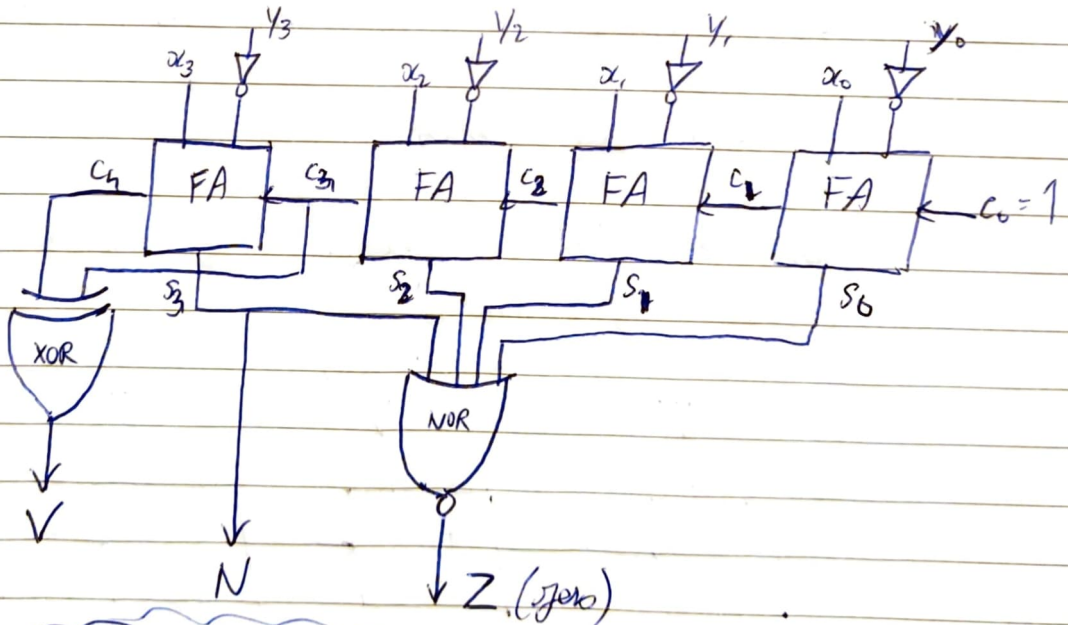 y₃ y₂ y₁ y₀
x₃ x₂ x₁ x₀
C₄ FA C₃ FA C₂ FA C₁ FA C₀ = 1
S₃ S₂ S₁ S₀
XOR
NOR
V
N
Z (zero)